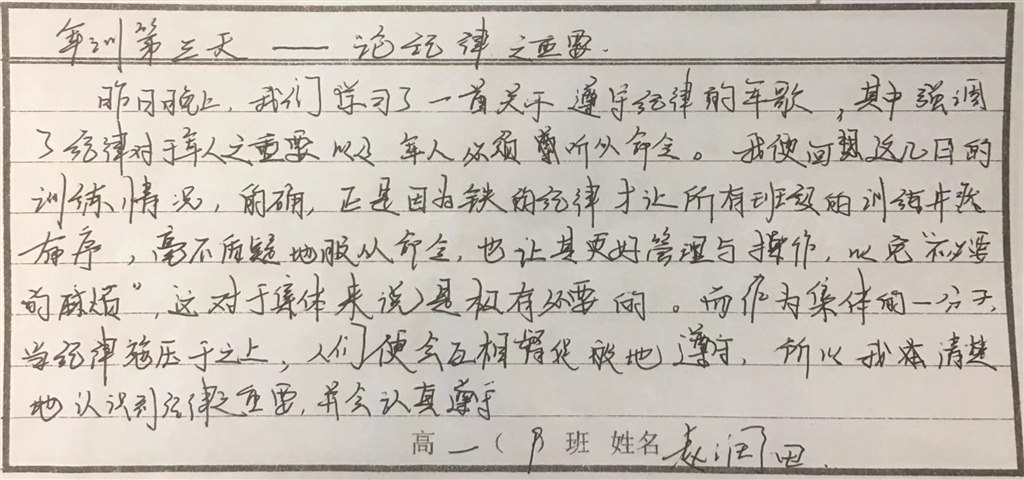 军训第三天 —— 论纪律之重要.
昨日晚上,我们学习了一首关于遵守纪律的军歌,其中强调
了纪律对于军人之重要以及军人必须尊听从命令。我便回想这几日的
训练情况,的确,正是因为铁的纪律才让所有班级的训练井然
有序,毫不质疑地服从命令,也让其更好管理与操作,以免“不必要
的麻烦”,这对于集体来说是极有必要的。而作为集体的一分子,
当纪律施压于之上,人们便会互相督促地遵守,所以我在清楚
地认识到纪律之重要,并会认真遵守
高一( )班 姓名 赵润田.